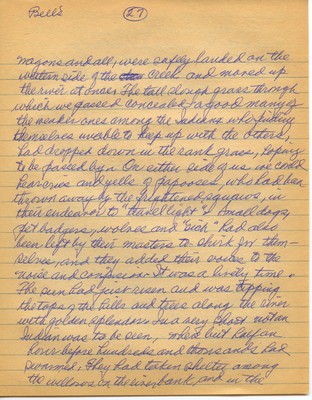 Bell's
(27)
wagons and all, were safely landed on the
western side of the creek and moved up
the river at once. The tall slough grass through
which we passed concealed a good many of
the weaker ones among the Indians who finding
themselves unable to keep up with the others,
had dropped down in the rank grass, hoping
to be passed by. On either side of us we could
hear cries and yells of papooses, who had been
thrown away by the frightened squaws, in
their endeavor to "travel light". Small dogs,
pet badgers, wolves and "sich" had also
been left by their masters to shirk for them-
selves, and they added their voices to the
noise and confusion. It was a lively time.
The sun had just risen and was tipping
the tops of the hills and trees along the river
with golden splendor. In a very short not an
Indian was to be seen, where but half an
hour before hundreds and thousands had
swarmed. They had taken shelter among
the willows on the river bank, and in the